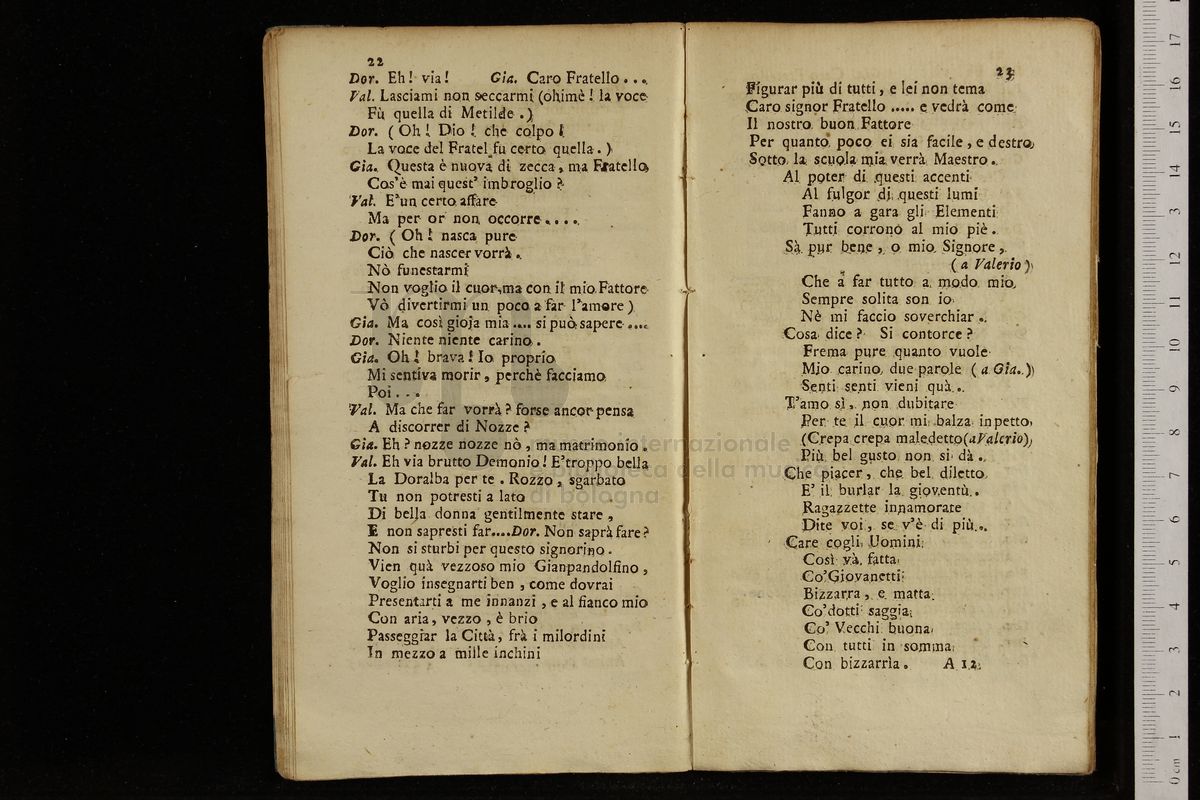 22
Dor. Eh! via! Gia. Caro Fratello...
Val. Lasciami non seccarmi (ohimè! la voce
Fù quella di Metilde.)
Dor. (Oh! Dio! che colpo!
La voce del Fratel fu certo quella.)
Gia. Questa è nuova di zecca, ma Fratello
Cos'è mai quest' imbroglio?
Val. E'un certo affare
Ma per or non occorre....
Dor. (Oh! nasca pure
Ciò che nascer vorrà.
Nò funestarmi
Non voglio il cuor, ma con il mio Fattore
Vò divertirmi un poco a far l'amore)
Gia. Ma così gioja mia.... si può sapere....
Dor. Niente niente carino.
Gia. Oh! brava! Io proprio
Mi sentiva morir, perchè facciamo
Poi...
Val. Ma che far vorrà? forse ancor pensa
A discorrer di Nozze?
Gia. Eh? nozze nozze nò, ma matrimonio.
Val. Eh via brutto Demonio! E'troppo bella
La Doralba per te. Rozzo, sgarbato
Tu non potresti a lato
Di bella donna gentilmente stare,
E non sapresti far....Dor. Non saprà fare?
Non si sturbi per questo signorino.
Vien quà vezzoso mio Gianpandolfino,
Voglio insegnarti ben, come dovrai
Presentarti a me innanzi, e al fianco mio
Con aria, vezzo, è brio
Passeggiar la Città, frà i milordini
In mezzo a mille inchini
23
Figurar più di tutti, e lei non tema
Caro signor Fratello..... e vedrà come
Il nostro buon Fattore
Per quanto poco ei sia facile, e destro
Sotto la scuola mia verrà Maestro.
Al poter di questi accenti
Al fulgor di questi lumi
Fanno a gara gli Elementi
Tutti corrono al mio piè.
Sà pur bene, o mio Signore,
(a Valerio)
Che a far tutto a modo mio
Sempre solita son io
Nè mi faccio soverchiar.
Cosa dice? Si contorce?
Frema pure quanto vuole
Mio carino, due parole (a Gia.)
Senti senti vieni quà.
T'amo sì, non dubitare
Per te il cuor mi balza in petto
(Crepa crepa maledetto (a Valerio)
Più bel gusto non si dà.
Che piacer, che bel diletto
E' il burlar la gioventù.
Ragazzette innamorate
Dite voi, se v'è di più.
Care cogli Uomini
Così và fatta
Co'Giovanetti
Bizzarra, e matta
Co'dotti saggia
Co' Vecchi buona
Con tutti in somma
Con bizzarrìa. A 12
museo internazionale
e biblioteca della musica
di bologna
0 cm 1 2 3 4 5 6 7 8 9 10 11 12 13 14 15 16 17